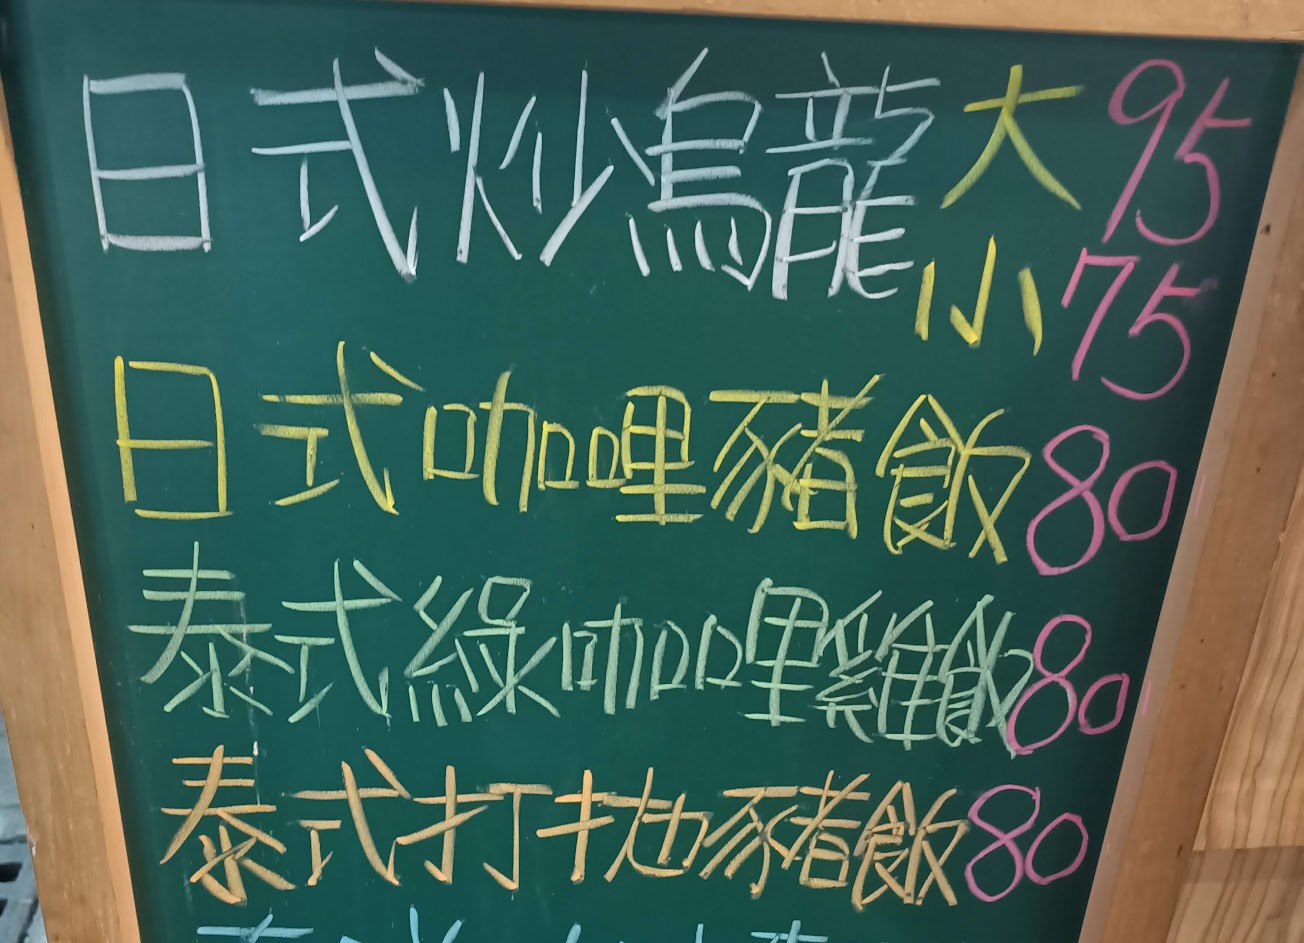 日式炒烏龍 大 95
小 75
日式咖哩豬飯 80
泰式綠咖哩雞飯 80
泰式打拋豬飯 80